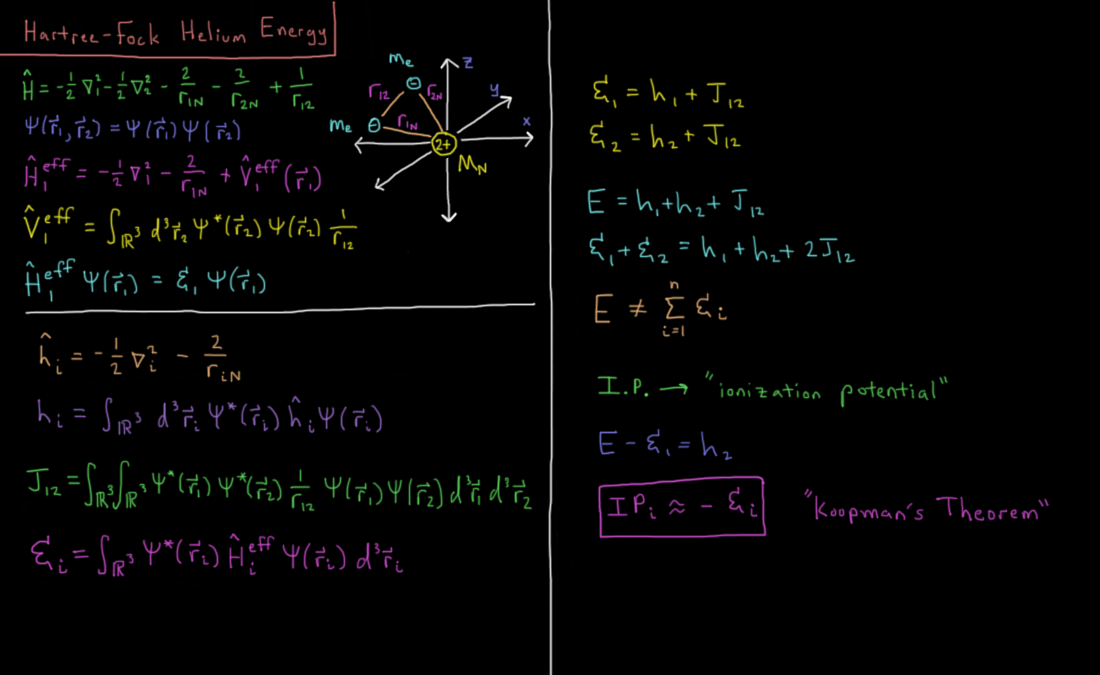 Hartree-Fock Helium Energy
Ĥ = -½ ∇₁² - ½ ∇₂² - 2/r₁N - 2/r₂N + 1/r₁₂
Ψ(r⃗₁, r⃗₂) = Ψ(r⃗₁) Ψ(r⃗₂)
Ĥ₁^eff = -½ ∇₁² - 2/r₁N + V̂₁^eff(r⃗₁)
V̂₁^eff = ∫_ℝ³ d³r⃗₂ Ψ*(r⃗₂) Ψ(r⃗₂) 1/r₁₂
Ĥ₁^eff Ψ(r⃗₁) = ξ₁ Ψ(r⃗₁)
mₑ
z
r₁₂
⊖
r₂N
y
mₑ
⊖
r₁N
x
2+
M_N
ĥᵢ = -½ ∇ᵢ² - 2/rᵢN
hᵢ = ∫_ℝ³ d³r⃗ᵢ Ψ*(r⃗ᵢ) ĥᵢ Ψ(r⃗ᵢ)
J₁₂ = ∫_ℝ³ ∫_ℝ³ Ψ*(r⃗₁) Ψ*(r⃗₂) 1/r₁₂ Ψ(r⃗₁) Ψ(r⃗₂) d³r⃗₁ d³r⃗₂
ξᵢ = ∫_ℝ³ Ψ*(r⃗ᵢ) Ĥᵢ^eff Ψ(r⃗ᵢ) d³r⃗ᵢ
ξ₁ = h₁ + J₁₂
ξ₂ = h₂ + J₁₂
E = h₁ + h₂ + J₁₂
ξ₁ + ξ₂ = h₁ + h₂ + 2J₁₂
E ≠ Σ_{i=1}^{n} ξᵢ
I.P. → "ionization potential"
E - ξ₁ = h₂
IPᵢ ≈ - ξᵢ "Koopman's Theorem"